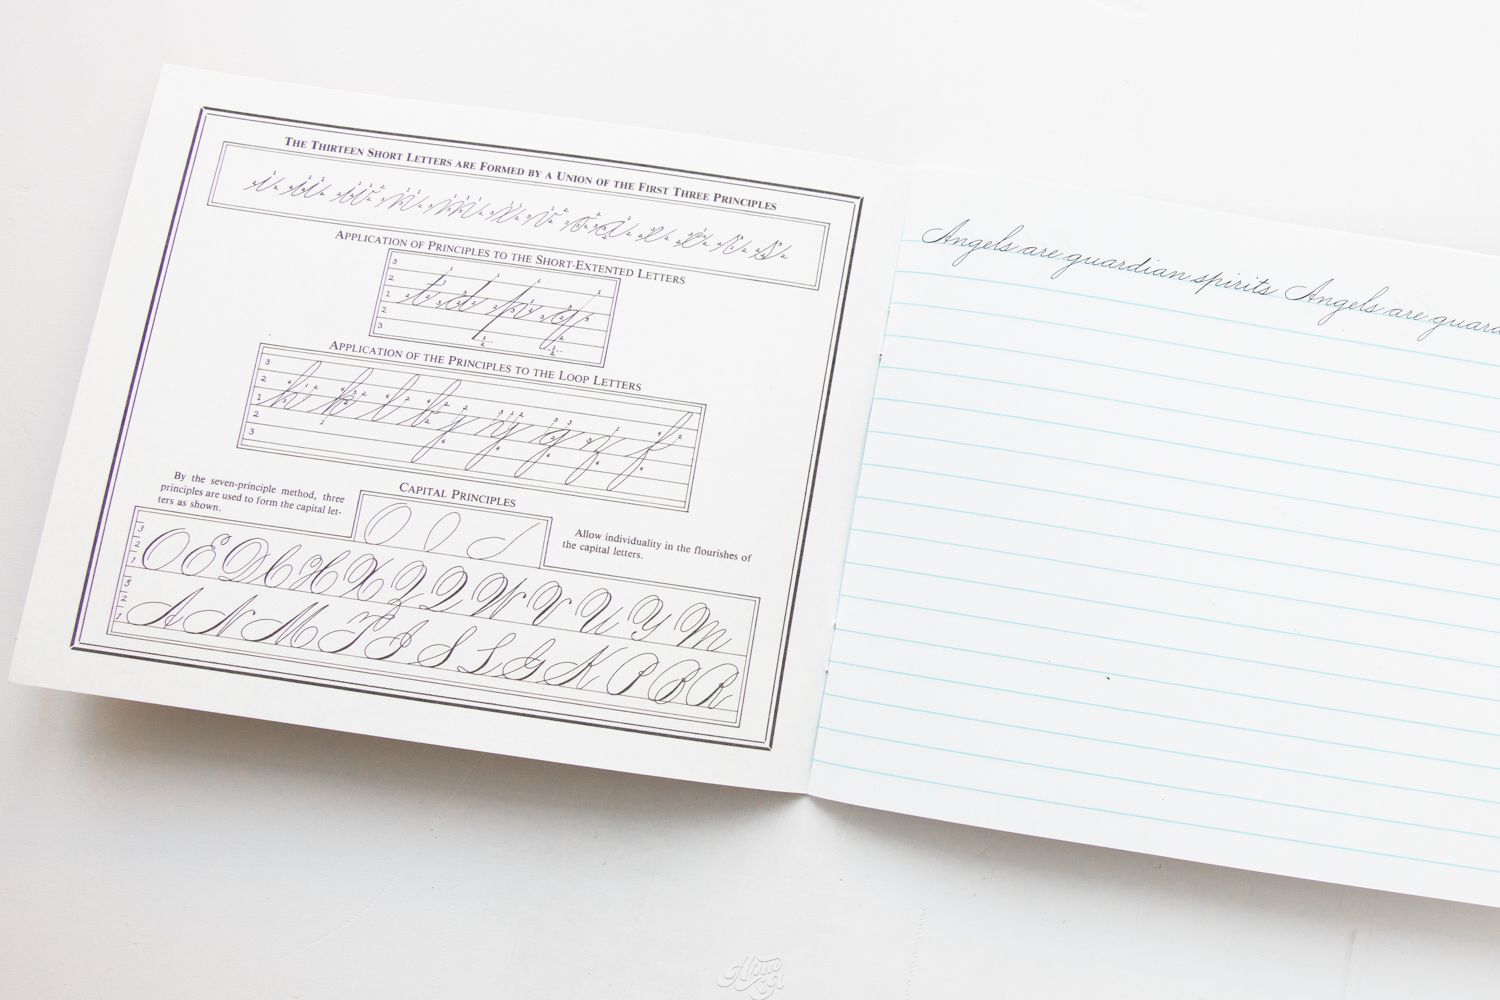 THE THIRTEEN SHORT LETTERS ARE FORMED BY A UNION OF THE FIRST THREE PRINCIPLES
i u w n m x v o a e r c s
APPLICATION OF PRINCIPLES TO THE SHORT-EXTENTED LETTERS
t d p q
APPLICATION OF THE PRINCIPLES TO THE LOOP LETTERS
h k l b j y g z f
By the seven-principle method, three
principles are used to form the capital let-
ters as shown.
CAPITAL PRINCIPLES
Allow individuality in the flourishes of
the capital letters.
O E D C H X Z Q W V U Y M
A N M T F S L G K P B R
Angels are guardian spirits Angels are guard